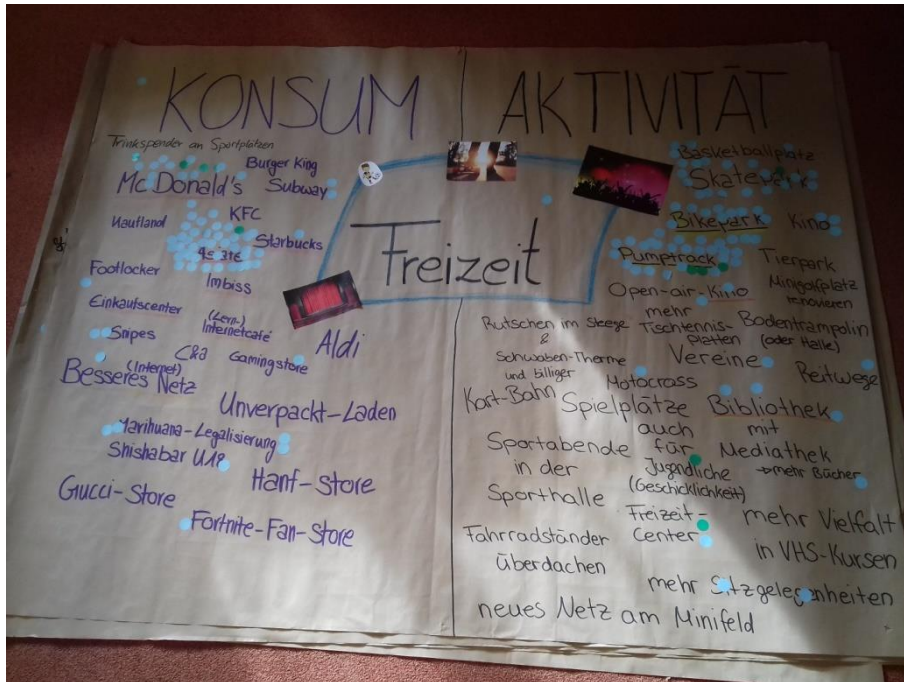 KONSUM
Trinkspender an Sportplätzen
Burger King
McDonald's
Subway
Kaufland
KFC
Starbucks
Imbiss
Footlocker
Einkaufscenter
(Lern-)
Internetcafé
Snipes
C&A
Gamingstore
Aldi
(Internet)
Besseres Netz
Unverpackt-Laden
Marihuana-Legalisierung
Shishabar U18
Hanf-Store
Gucci-Store
Fortnite-Fan-Store
Freizeit
AKTIVITÄT
Basketballplatz
Skatepark
Bikepark
Kino
Pumptrack
Tierpark
Open-air-Kino
Minigolfplatz
renovieren
mehr
Tischtennis-
platten
Bodentrampolin
(oder Halle)
Rutschen im Steege
&
Schwaben-Therme
und billiger
Vereine
Reitwege
Motocross
Kart-Bahn
Spielplätze
auch
für
Jugendliche
(Geschicklichkeit)
Bibliothek
mit
Mediathek
→mehr Bücher
Sportabende
in der
Sporthalle
Freizeit-
Center
mehr Vielfalt
in VHS-Kursen
Fahrradständer
überdachen
mehr Sitzgelegenheiten
neues Netz am Minifeld